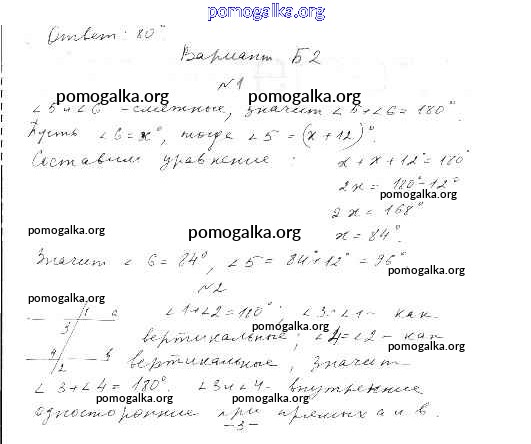 pomogalka.org
Ответ: 80°.
Вариант Б2
№1
pomogalka.org pomogalka.org
∠5 и ∠6 - смежные, значит ∠5+∠6=180°.
Пусть ∠6=x°, тогда ∠5=(x+12)°.
Составим уравнение: x+x+12°=180°
2x=180°-12°
pomogalka.org
2x=168°
pomogalka.org pomogalka.org
x=84°.
Значит ∠6=84°, ∠5=84°+12°=96°
pomogalka.org
№2
pomogalka.org
1 a ∠1+∠2=180°; ∠3=∠1 - как
3 pomogalka.org
вертикальные; ∠4=∠2 - как
pomogalka.org
4 b вертикальные, значит
2
∠3+∠4=180°. ∠3 и ∠4 - внутренние
pomogalka.org pomogalka.org pomogalka.org
односторонние при прямых a и b.
-3-